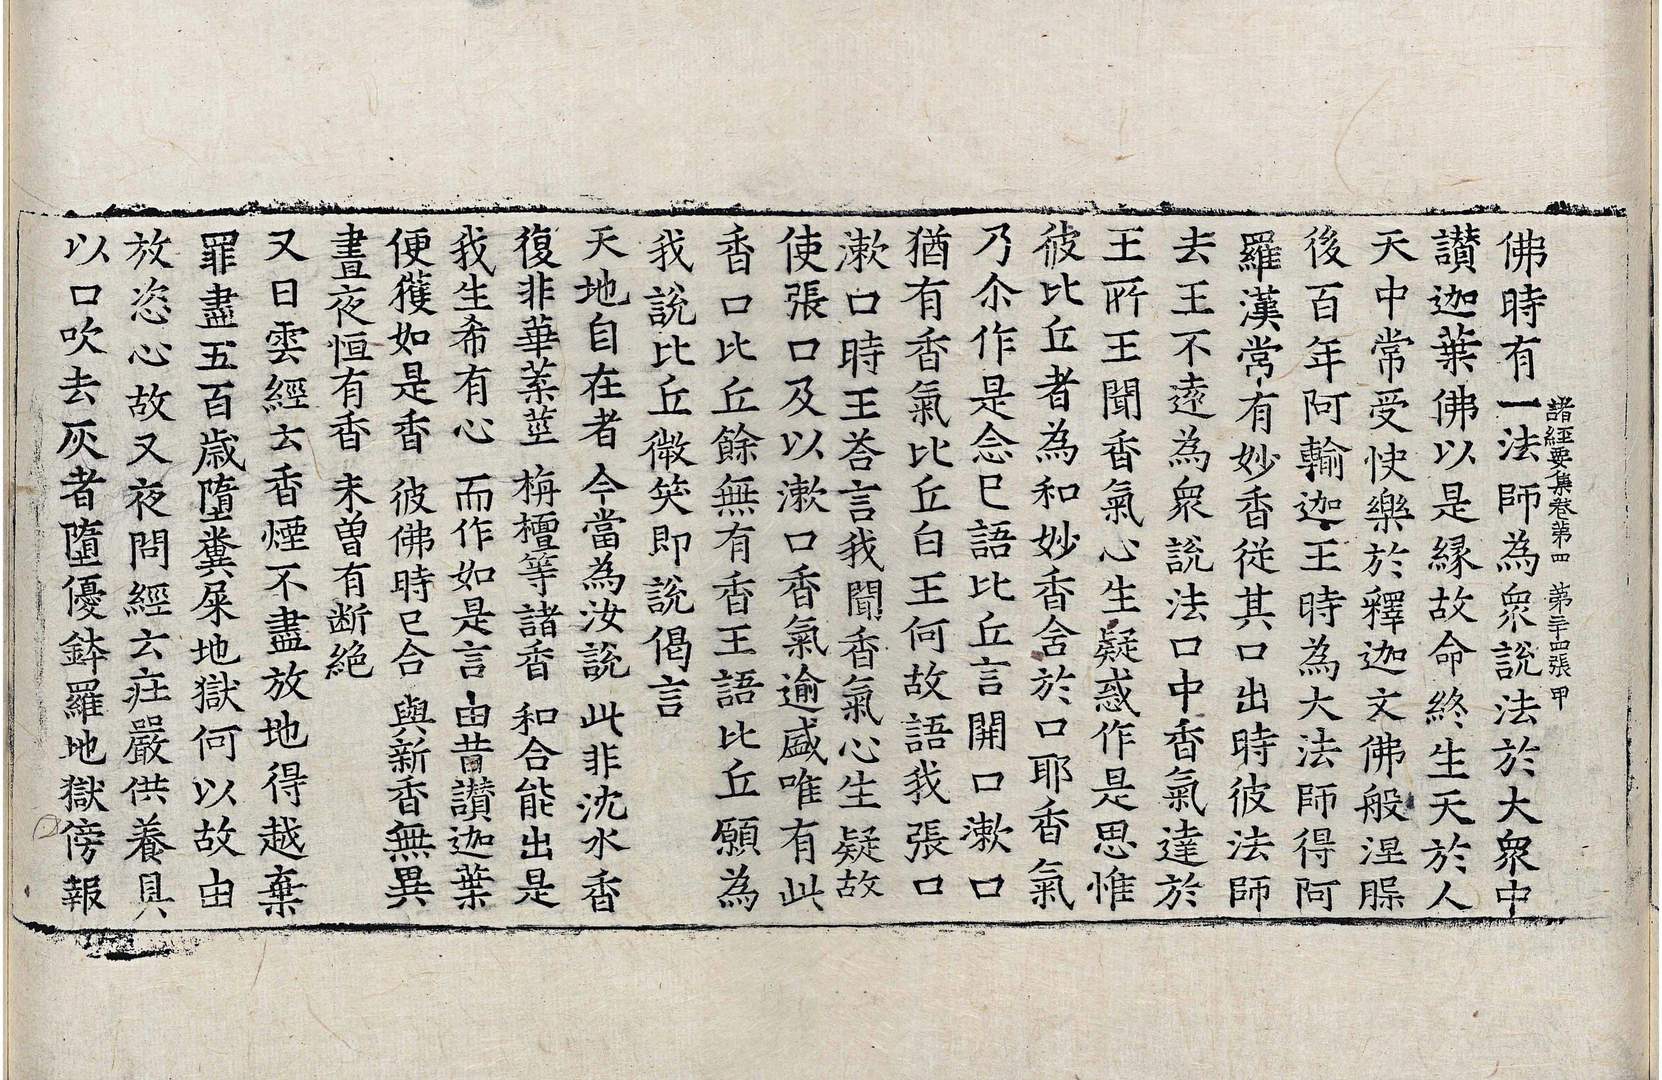 諸經要集卷第四　第三十四張　甲
佛時有一法師為衆說法於大衆中
讃迦葉佛以是縁故命終生天於人
天中常受快樂於釋迦文佛般涅𣵀
後百年阿輸迦王時為大法師得阿
羅漢常有妙香從其口出時彼法師
去王不遠為衆說法口中香氣達於
王所王聞香氣心生疑惑作是思惟
彼比丘者為和妙香含於口耶香氣
乃尒作是念已語比丘言開口漱口
猶有香氣比丘白王何故語我張口
漱口時王荅言我聞香氣心生疑故
使張口及以漱口香氣逾盛唯有此
香口比丘餘無有香王語比丘願為
我說比丘微笑即說偈言
天地自在者　今當為汝説　此非沈水香
復非華葉莖　栴檀等諸香　和合能出是
我生希有心　而作如是言　由昔讃迦葉
便獲如是香　彼佛時已合　與新香無異
晝夜恒有香　未曾有断絕
又日雲經云香煙不盡放地得越棄
罪盡五百歳墮糞屎地獄何以故由
放恣心故又夜問經云莊嚴供養具
以口吹去灰者墮優鉢羅地獄傍報